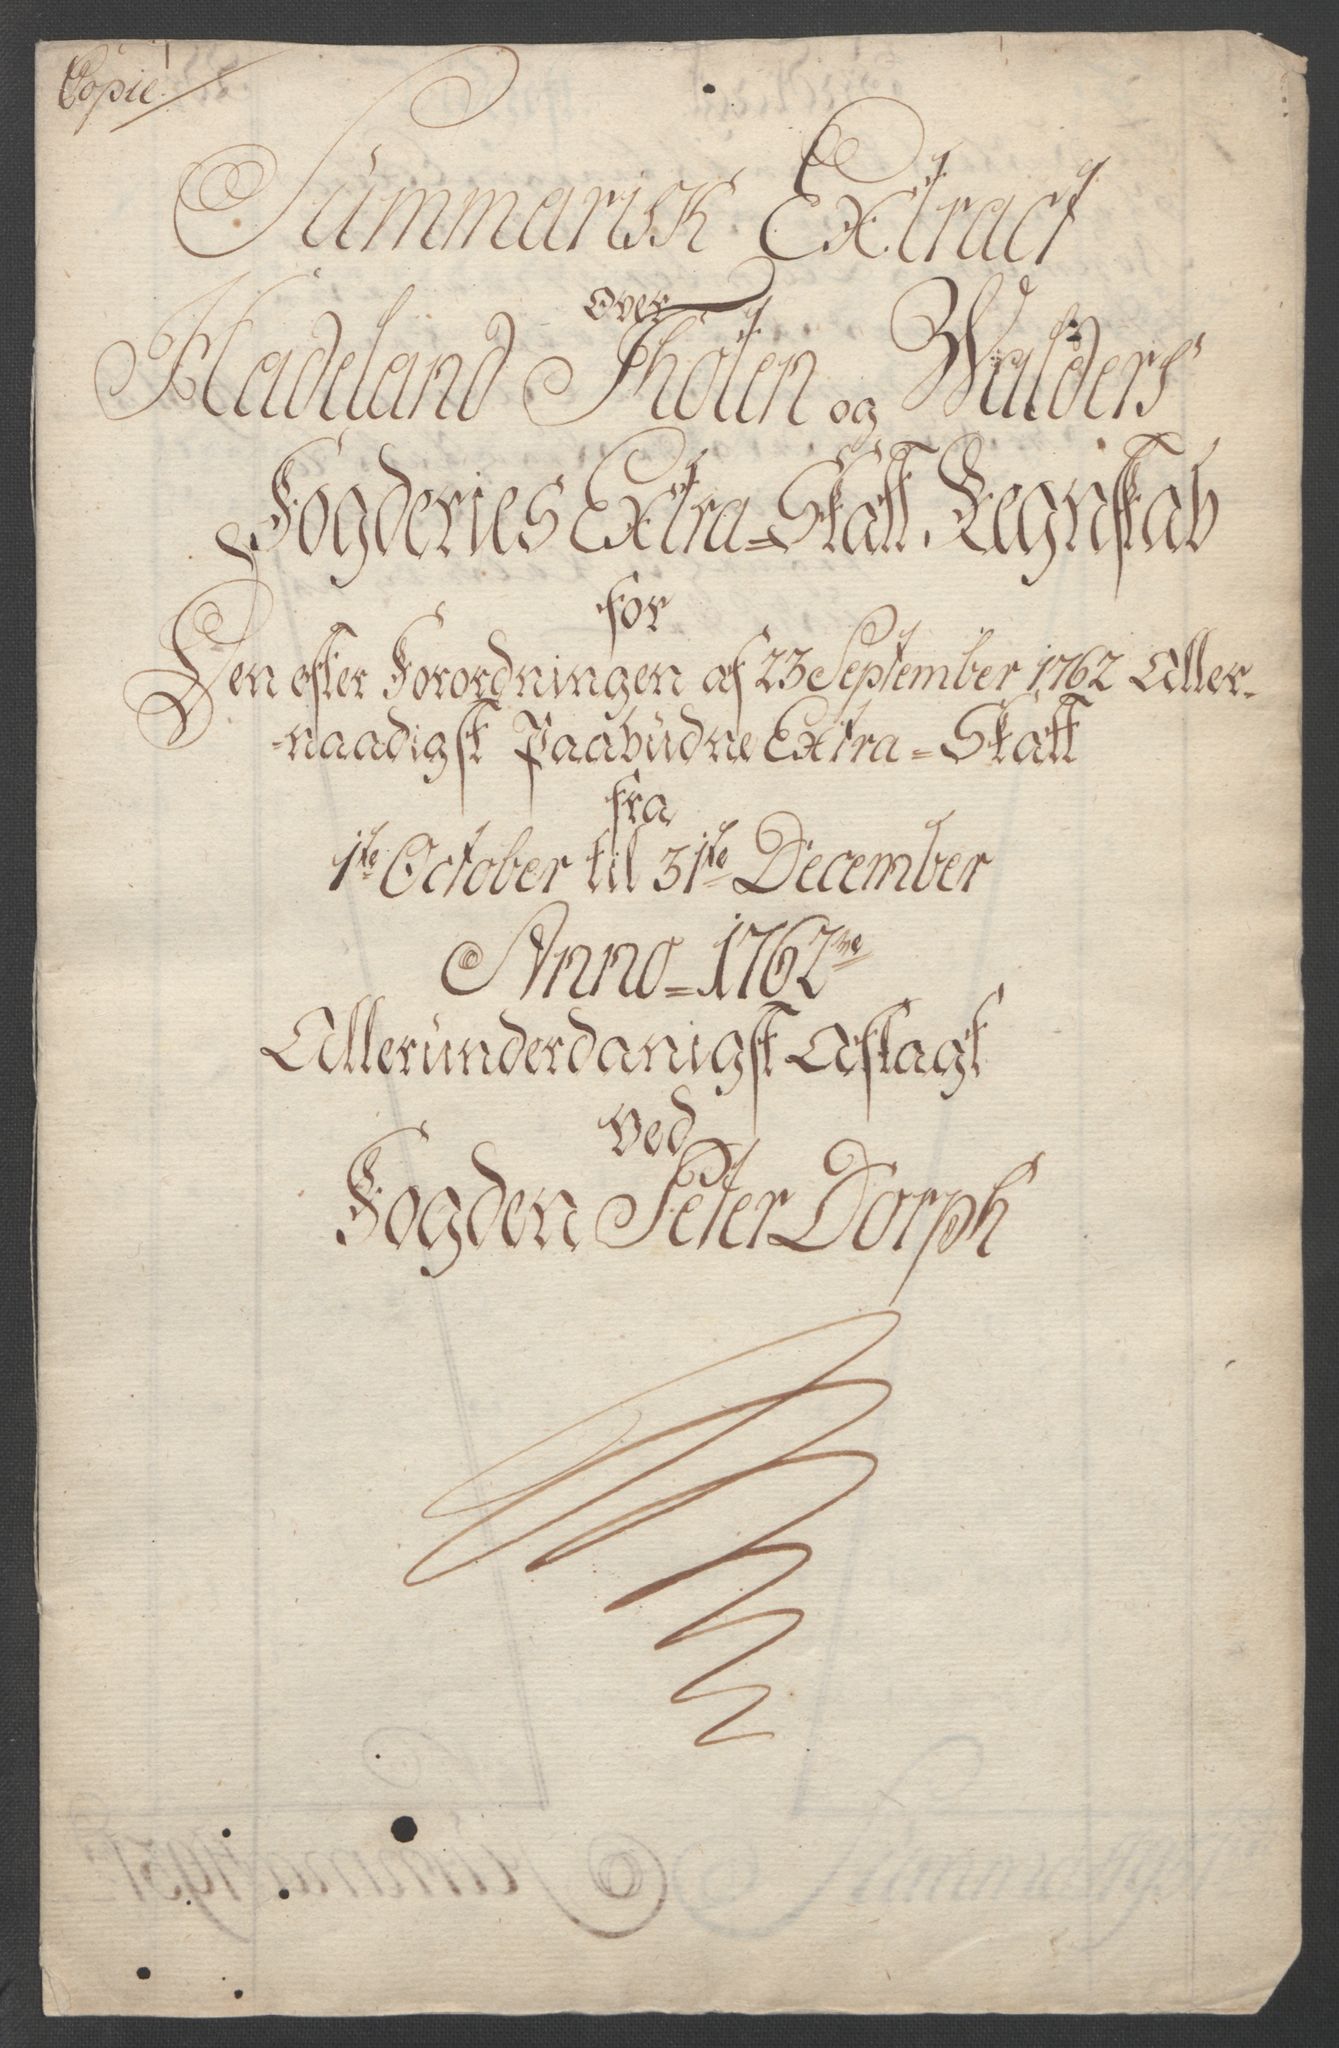 Copie
Summarisk Extract
over
Hadeland Thoten og Walders
Fogderies Extra-Skatt Regnskab
for
Den efter Forordningen af 23 September 1762 Aller-
-naadigst Paabudne Extra-Skatt
fra
1te October til 31te December
Anno-1762
Allerunderdanigst Aflagt
ved
Fogden Peter Dorph